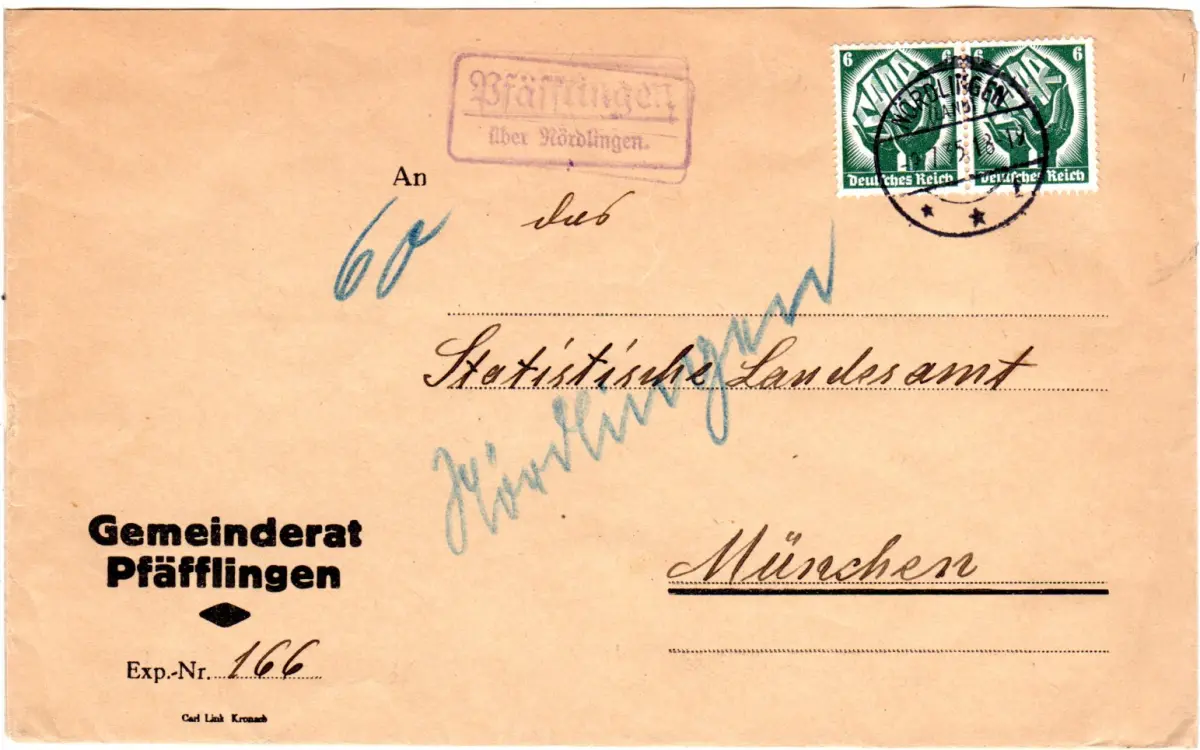 Pfäfflingen
über Nördlingen.
6 6
SAAR
Deutsches Reich
6 6
SAAR
Deutsches Reich
NÖRDLINGEN
An
das
60
Statistische Landesamt
Nördlingen
München
Gemeinderat
Pfäfflingen
Exp.-Nr. 166
Carl Link Kronach